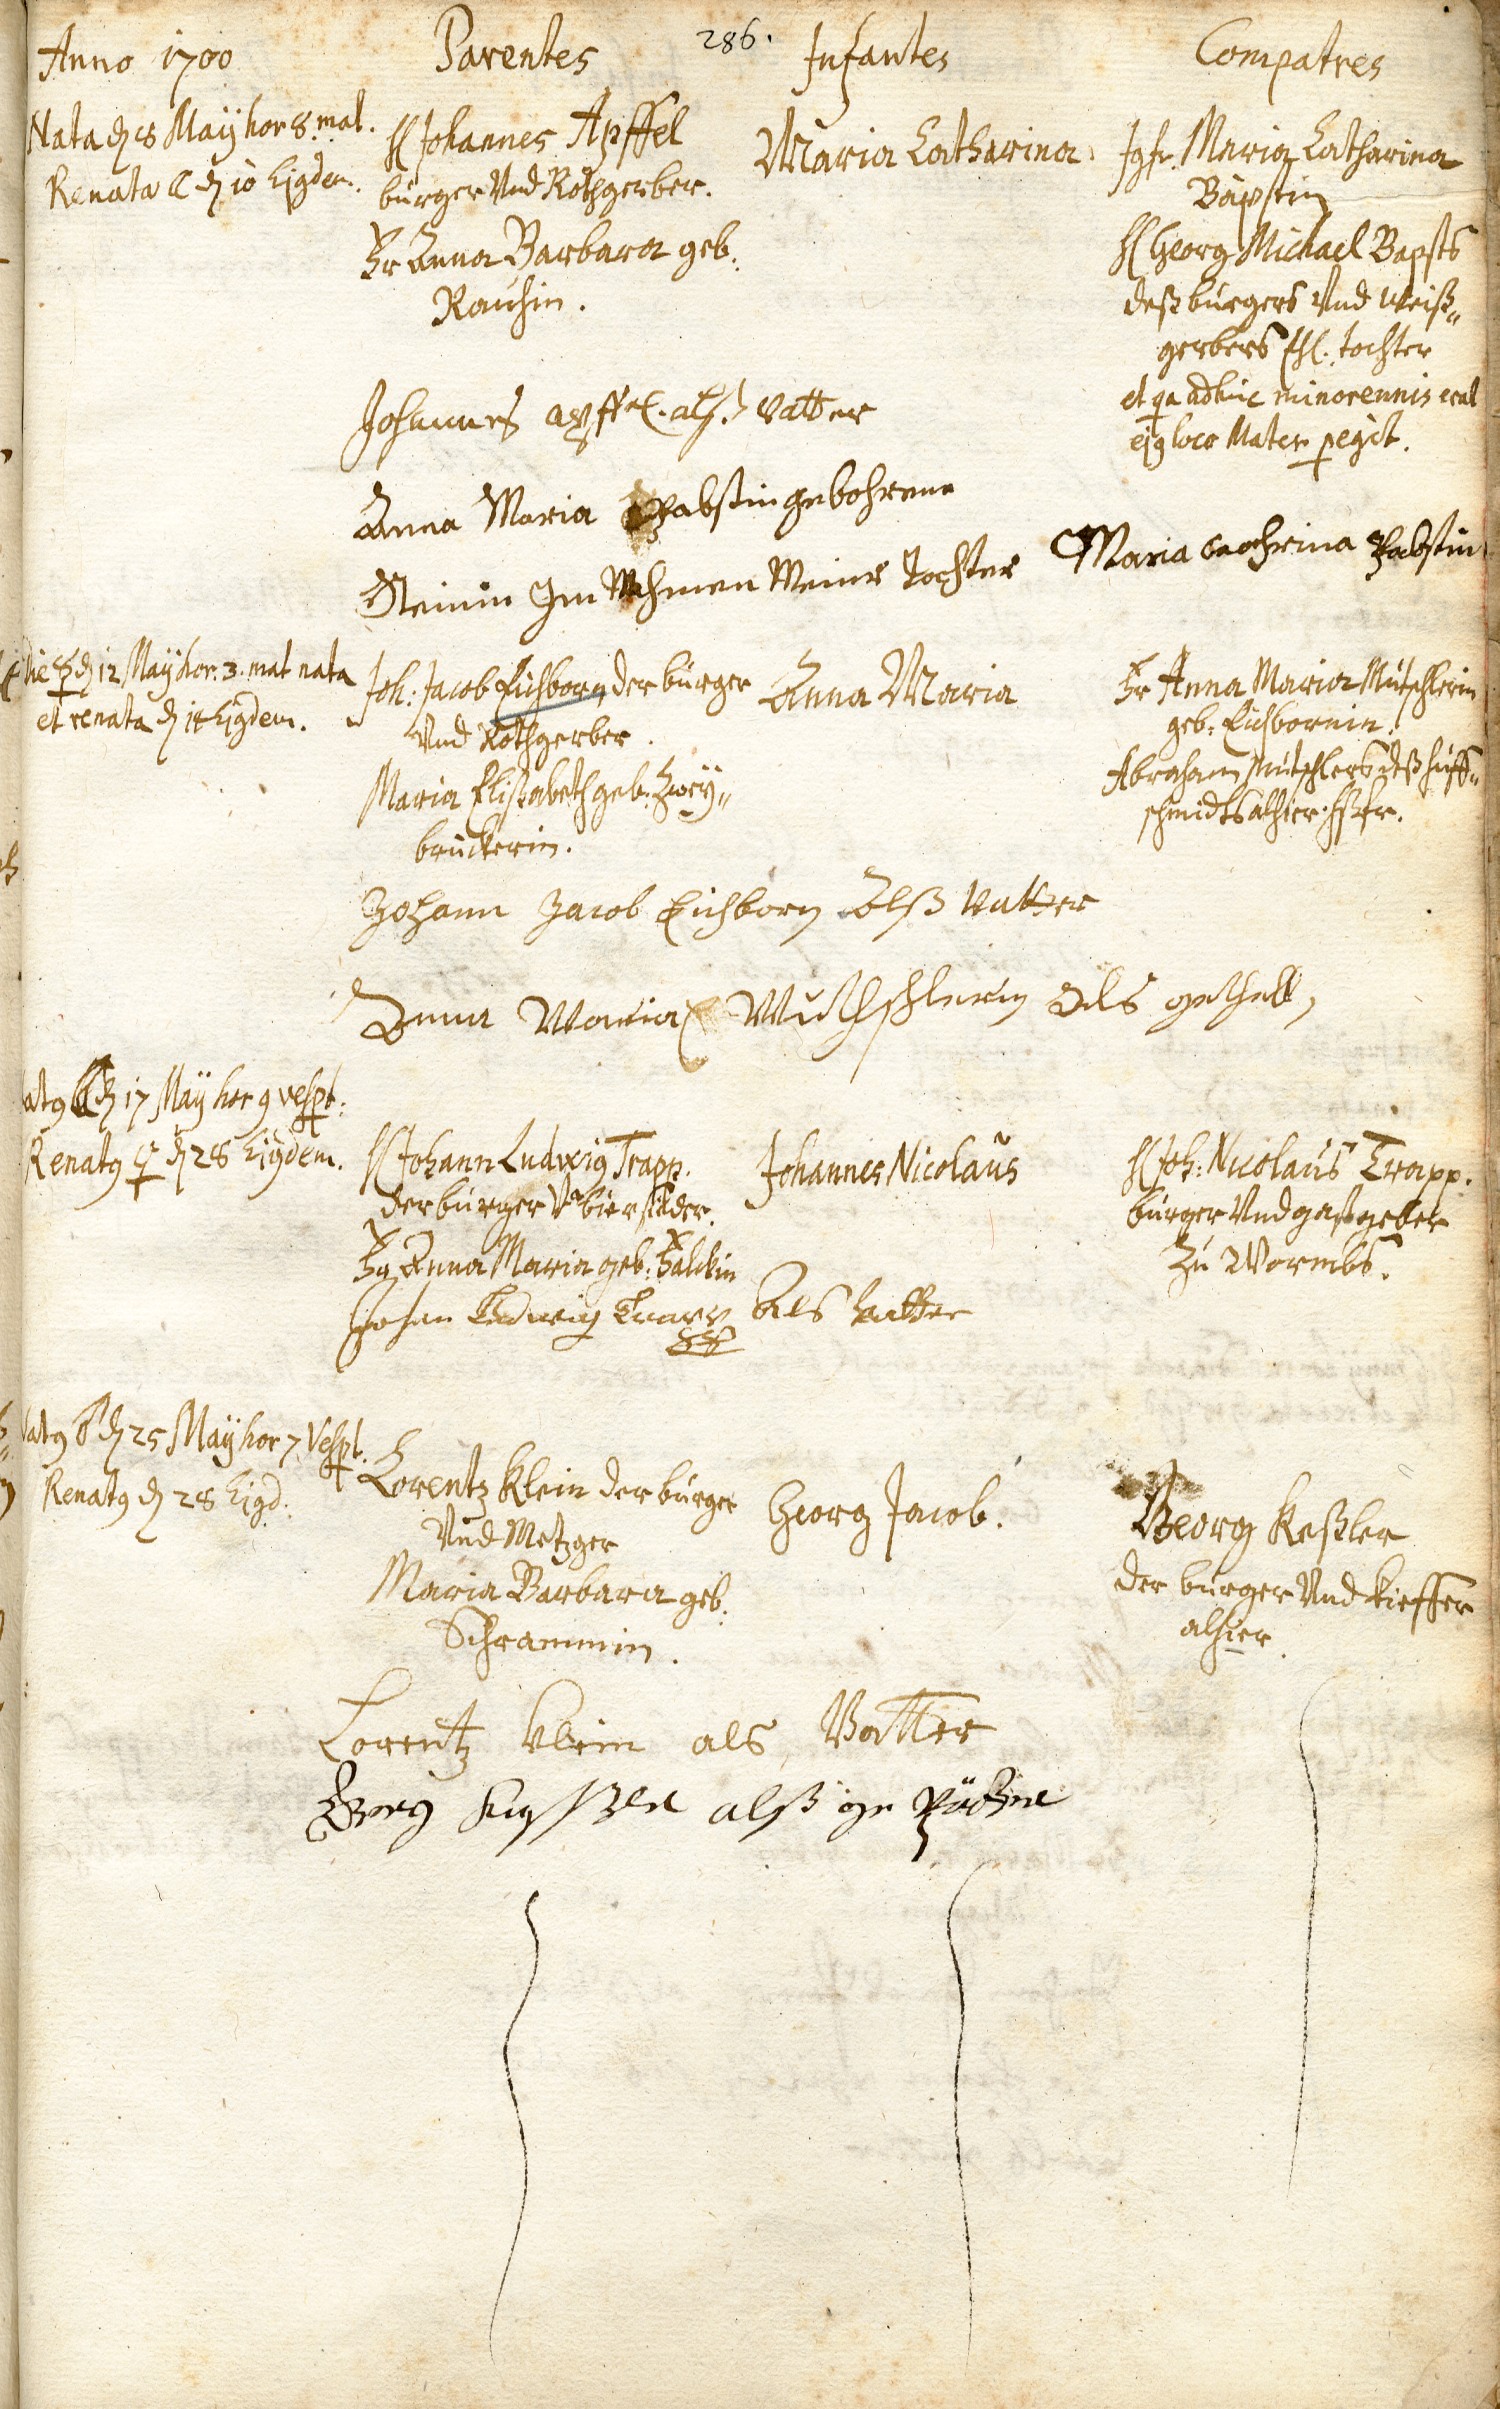 286.
Anno 1700
Parentes
Infantes
Compatres
Nata d. 8 Maÿ hor 8. mat.
Renata ☾ d. 10 Ejgdem.
H Johannes Apffel
bürger Und Rothgerber.
Fr Anna Barbara geb.
Rauhin.
Maria Catharina
Jgfr. Maria Catharina
Bäpstin
H Georg Michael Bapsts
deß bürgers Und Weiß„
gerbers Ehl. tochter
et qa adhuc minorennis erat
ej9 loco Mater pegit.
Johannes apffel. alß Vatter
Anna Maria Pabstin gebohrene
Steinin Im Nahmen Meiner Tochter
Maria Catrina Pabstin
die ☿ d. 12 Maÿ hor. 3. mat nata
et renata d. 14 Ejgdem.
Joh: Jacob Eichborn, der bürger
Und Rothgerber.
Maria Elisabeth geb. Zweÿ„
brückerin.
Anna Maria
Fr Anna Maria Mütschlerin
geb: Eichbornin.
Abraham Mutschlers deß huff„
schmidts alhier. hßfr.
Johann Jacob Eichborn Alß Vatter
Anna Maria Muthschlerin Als gethell,
Nat9 ☾ d. 17 Maÿ hor 9 vespt.
Renat9 ♀ d. 28 Ejgdem.
H Johann Ludwig Trapp.
der bürger V bier sieder.
Fr Anna Maria geb: Falckin
Johannes Nicolaus
H Joh: Nicolaus Trapp.
bürger Und gastgeber
Zu Wormbs.
Johan Ludwig Trapp Als Vatter
Nat9 ♂ d. 25 Maÿ hor 7 Vespt.
Renat9 d. 28 Ejgd.
Lorentz Klein der bürger
Und Metzger
Maria Barbara geb.
Schrammin.
Georg Jacob.
Georg Keßler
der bürger Und Kieffer
alhier.
Lorentz Klein als Vatter
Georg Keßler alß ge